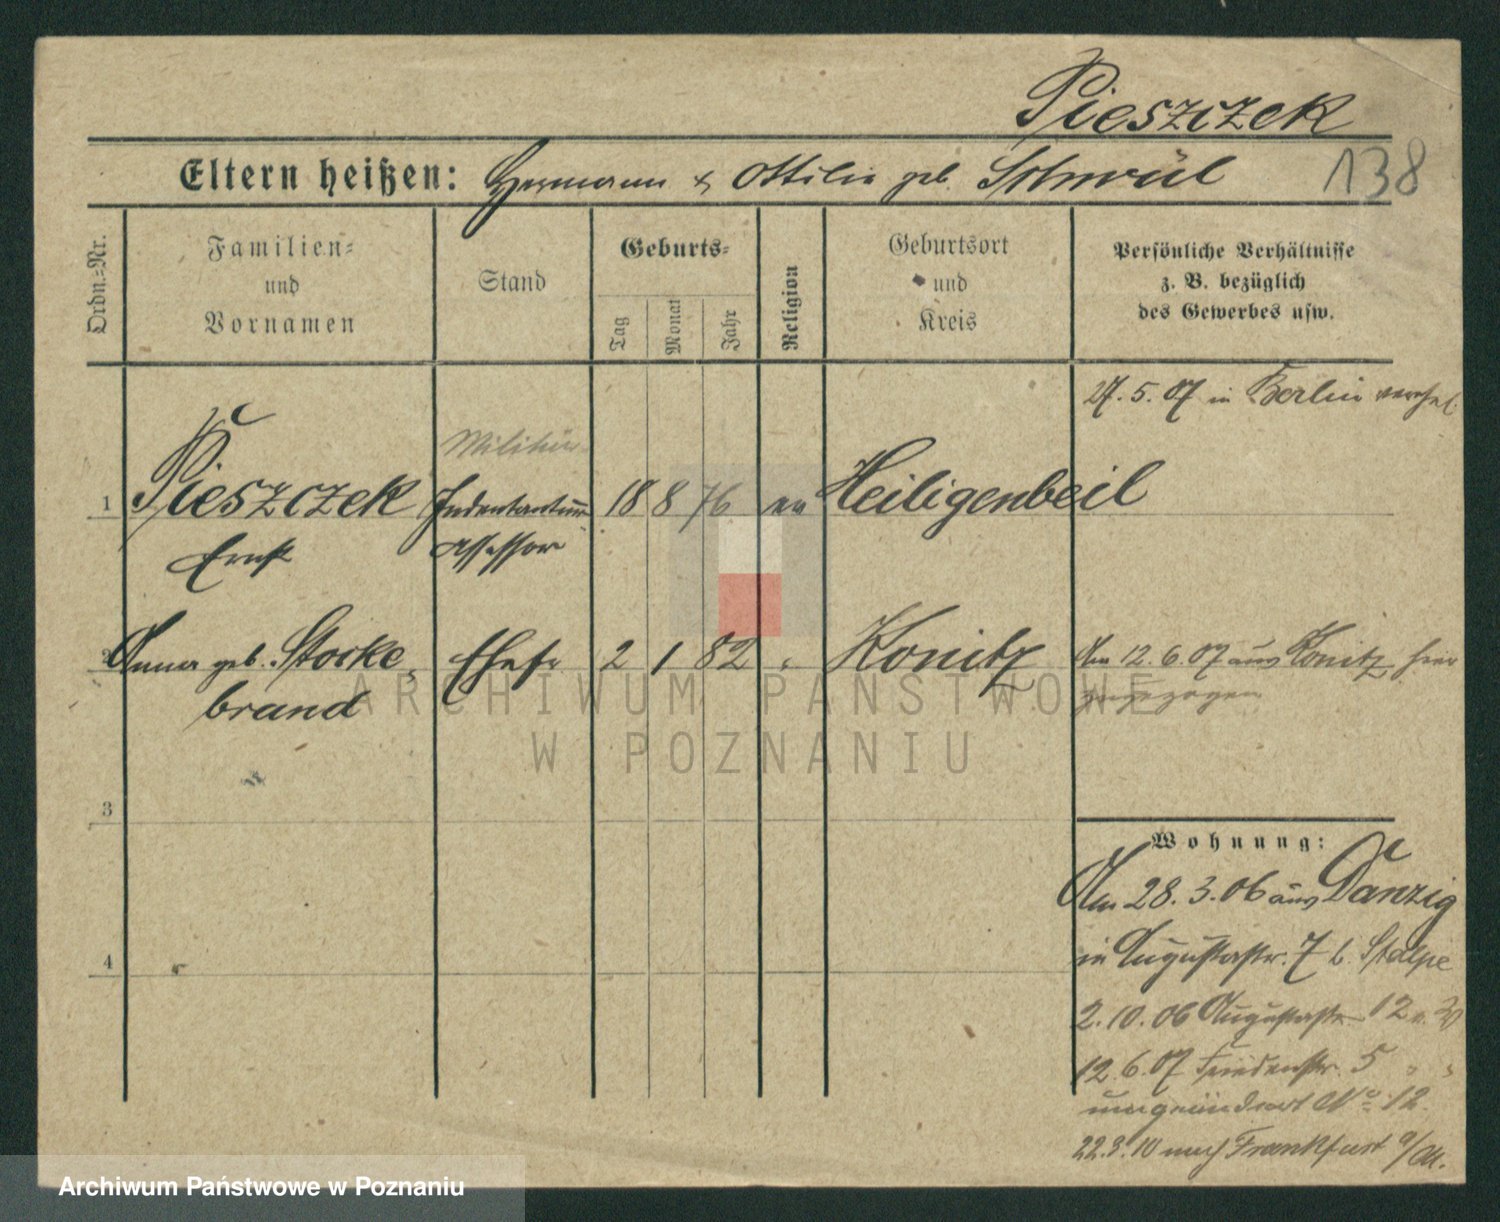 Pieszczek
Eltern heißen: Hermann & Ottilie geb. Schmül
138
Ordn.-Nr.
Familien-
und
Vornamen
Stand
Geburts-
Tag
Monat
Jahr
Religion
Geburtsort
und
Kreis
Persönliche Verhältnisse
z. B. bezüglich
des Gewerbes usw.
27. 5. 07 in Berlin verehel.
Militär
1 Pieszczek Indentantur 18 8 76 ev Heiligenbeil
Ernst Assessor
2 Anna geb. Storke- Ehefr 2 1 82 " Konitz Am 12. 6. 07 aus Konitz hier
brand zugezogen
3
4
Wohnung:
Am 28. 3. 06 aus Danzig
in Augustastr. 7 b. Stolpe
2. 10. 06 Augustastr. 12
12. 6. 07 Friedenstr. 5
umgeändert No 12.
22.3.10 nach Frankfurt a/M.
ARCHIWUM PAŃSTWOWE
W POZNANIU
Archiwum Państwowe w Poznaniu